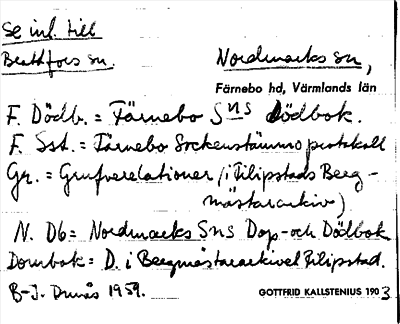 Se inl. till
Brattfors sn.
Nordmarks sn,
Färnebo hd, Värmlands län
F. Dödb. = Färnebo Sns Dödbok.
F. Sst. = Färnebo Sockenstämmoprotokoll
Gr. = Grufverelationer (i Filipstads Berg-
mästararkiv)
N. Db = Nordmarks Sns Dop- och Dödbok
Dombok = D. i Bergmästararkivet Filipstad.
B-J. 1959.
GOTTFRID KALLSTENIUS 1903